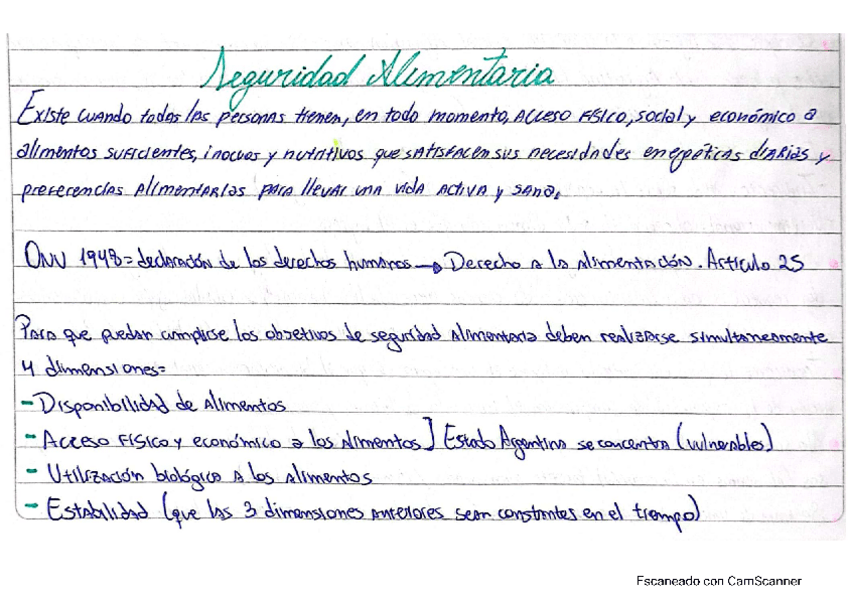 Seguridad Alimentaria
Existe cuando todas las personas tienen, en todo momento, acceso físico, social y económico a
alimentos suficientes, inocuos y nutritivos que satisfacen sus necesidades energéticas diarias y
preferencias alimentarias para llevar una vida activa y sana.
ONU 1948= declaración de los derechos humanos → Derecho a la alimentación. Artículo 25
Para que puedan cumplirse los objetivos de seguridad alimentaria deben realizarse simultaneamente
4 dimensiones=
- Disponibilidad de alimentos
- Acceso físico y económico a los alimentos] Estado Argentino se concentra (vulnerables)
- Utilización biológico a los alimentos
- Estabilidad (que las 3 dimensiones anteriores sean constantes en el tiempo)
Escaneado con CamScanner